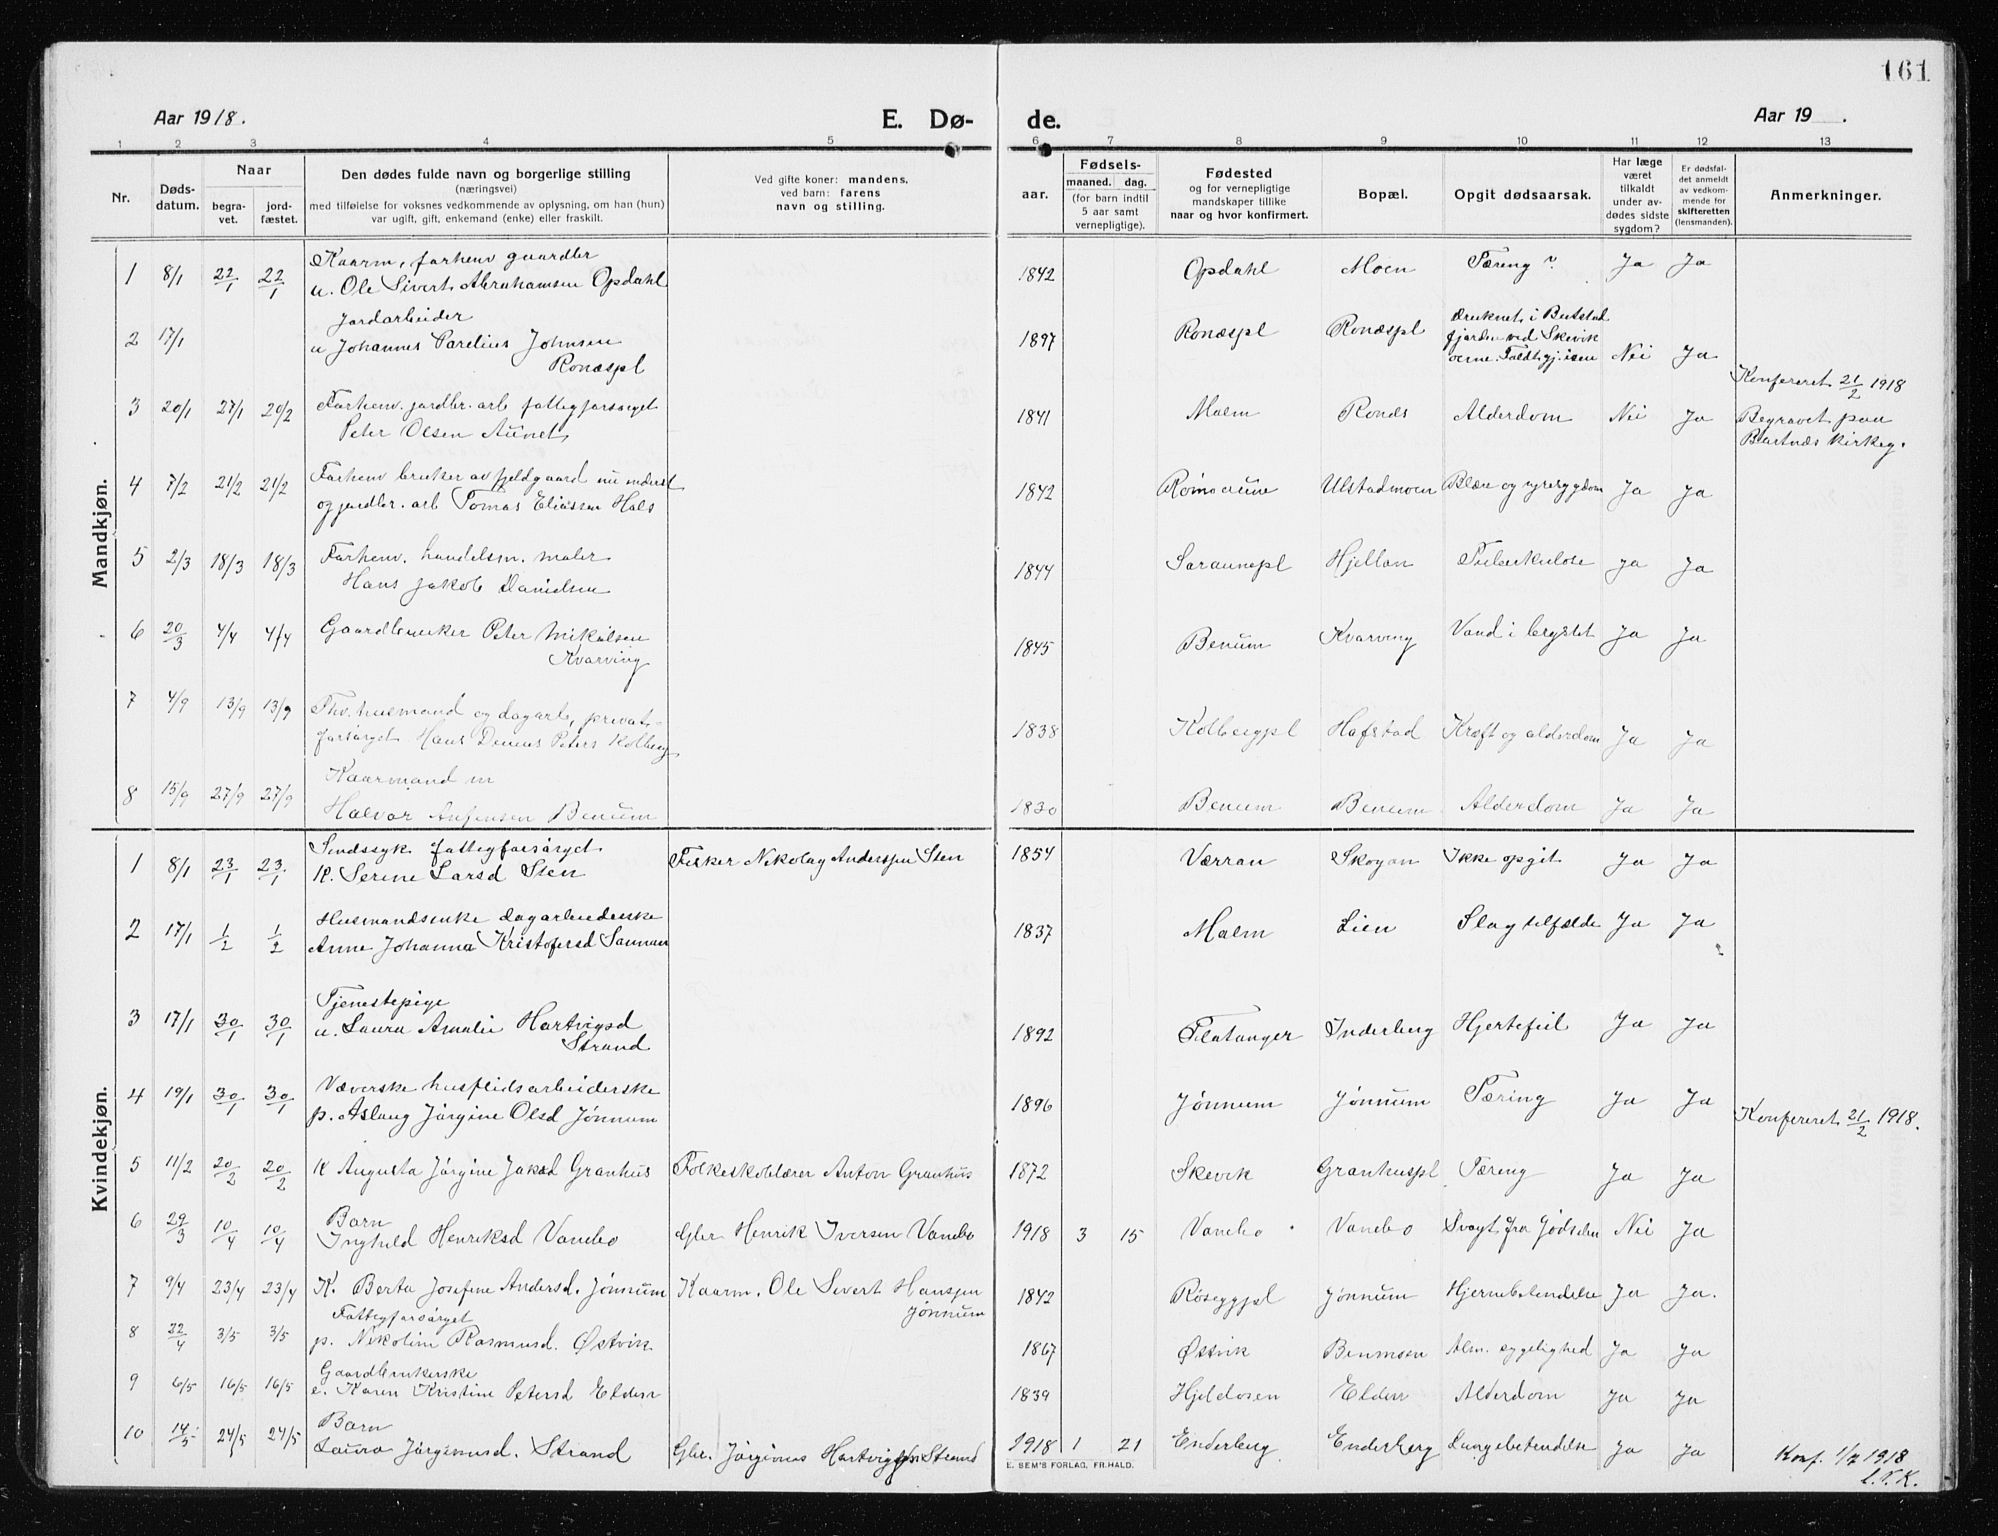 161
Aar 1918.
E. Dø-
de.
Aar 19 .
1 2 3 4 5 6 7 8 9 10 11 12 13
Nr.
Døds-
datum.
Naar
begra-
vet.
jord-
fæstet.
Den dødes fulde navn og borgerlige stilling
(næringsvei)
med tilføielse for voksnes vedkommende av oplysning, om han (hun)
var ugift, gift, enkemand (enke) eller fraskilt.
Ved gifte koner: mandens.
ved barn: farens
navn og stilling.
aar.
Fødsels-
maaned. dag.
(for barn indtil
5 aar samt
vernepligtige).
Fødested
og for vernepligtige
mandskaper tillike
naar og hvor konfirmert.
Bopæl.
Opgit dødsaarsak.
Har læge
været
tilkaldt
under av-
dødes sidste
sygdom?
Er dødsfal-
det anmeldt
av vedkom-
mende for
skifteretten
(lensmanden).
Anmerkninger.
Mandkjøn.
1 8/1 22/1 22/1 Kaarm, forhenv gaardbr
u. Ole Sivert Abrahamsen Opdahl
1842 Opdahl Moen Tæring ? Ja Ja
2 17/1 Jordarbeider
u Johannes Parelius Johnsen
Ronæspl
1897 Ronæspl Ronæspl Druknet i Beitstad
fjorden ved Skevik
Nei Ja
Konfereret 21/2 1918
3 20/1 27/1 20/2 Forhenv. jordbr. arb fattigforsørget
Peter Olsen Aunet
1841 Malm Ronæs Alderdom Nei Ja Begravet paa
Bartnæs kirkeg.
4 7/2 21/2 21/2 Forhenv bruker av fjeldgaard nu inderst
og jordbr. arb Tomas Eliassen Hals
1842 Romoaune Ulstadmoen Blære og nyresygdom Ja Ja
5 2/3 18/3 18/3 Forhenv. handelsm. maler
Hans Jakob Danielsen
1844 Saraunepl Hjellan Tuberkulose Ja Ja
6 20/3 4/4 4/4 Gaardbruker Peter Mikalsen
Kvarving
1845 Benum Kvarving Vand i brystet Ja Ja
7 4/9 13/9 13/9 Fhv. husmand og dagarb, privat-
forsørget Hans Peters Kolberg
1838 Kolbergpl Hafstad Kræft og alderdom Ja Ja
8 15/9 27/9 27/9 Kaarmand
Halvor Anfinsen Benum
1830 Benum Benum Alderdom Ja Ja
Kvindekjøn.
1 8/1 23/1 23/1 Sindssyk fattigforsørget
K. Serine Larsd Sten
Fisker Nikolay Anderssen Sten 1854 Værran Skogan Ikke opgit Ja Ja
2 17/1 1/2 1/2 Husmandsenke dagarbeiderske
Anne Johanna Kristofersd Saunan
1837 Malm Lien Slagtilfælde Ja Ja
3 17/1 30/1 30/1 Tjenestepige
u. Laura Amalie Hartvigsd
Strand
1892 Flatanger Inderberg Hjertefeil Ja Ja
4 19/1 30/1 30/1 Væverske husflidsarbeiderske
p. Aslaug Jørgine Olsd Jønnum
1896 Jønnum Jønnum Tæring Ja Ja Konfereret 21/2 1918.
5 11/2 20/2 20/2 K Augusta Jørgine Jakobd Granhus Folkeskolelærer Anton Granhus 1872 Skevik Granhuspl Tæring Ja Ja
6 29/3 10/4 10/4 Barn
Inghild Henriksd Vanebo Gbr Henrik Iversen Vanebo 1918 3 15 Vanebo Vanebo Svagt fra Fødselen Nei Ja
7 9/4 23/4 23/4 K. Berta Josefine Andersd. Jønnum Kaarm. Ole Sivert Hanssen
Jønnum
1842 Røseggpl Jønnum Hjernebetendelse Ja Ja.
8 22/4 3/5 3/5 Fattigforsørget
p. Nikoline Rasmusd. Østvik 1867 Østvik Benumsen Alm. sygelighed Ja Ja
9 6/5 16/5 16/5 Gaardbrukerske
e. Karen Kristine Petersd Elden 1839 Hjeldosen Elden Alderdom Ja Ja
10 14/5 24/5 24/5 Barn
Laura Jørginusd. Strand Gbr. Jørginus Hartvigsen Strand 1918 1 21 Enderberg Enderberg Lungebetendelse Ja Ja
E. SEM'S FORLAG, FR.HALD.
Konf. 1/7 1918
L.V.K.